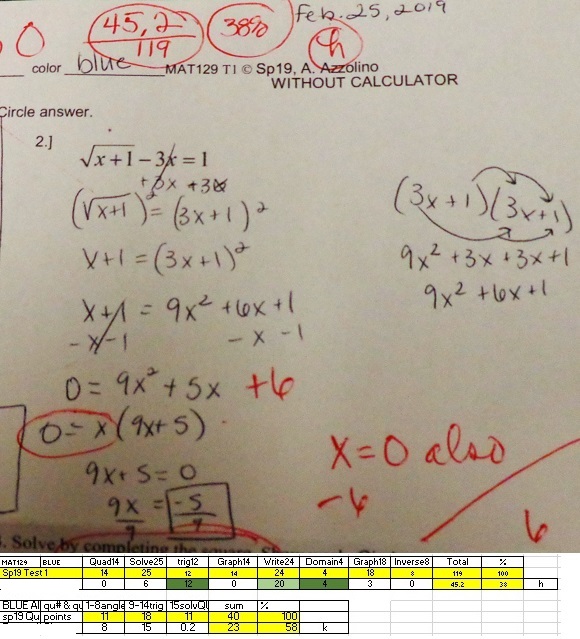 0
45,2
119
38%
Feb. 25, 2019
h
color blue
MAT129 T1 © Sp19, A. Azzolino
WITHOUT CALCULATOR
Circle answer.
2.]
√x+1 − 3x = 1
+3x +3x
(√x+1)² = (3x+1)²
x+1 = (3x+1)²
x+1 = 9x² +6x+1
-x-1 -x -1
0 = 9x² + 5x +6
0 = x(9x+5)
9x+5=0
9x = -5
9 9
(3x+1)(3x+1)
9x² +3x +3x+1
9x² +6x+1
x=0 also
-6
6
. Solve by completing the square.
MAT129 BLUE Quad14 Solve25 trig12 Graph14 Write24 Domain4 Graph18 Inverse8 Total %
Sp19 Test 1 14 25 12 14 24 4 18 8 119 100
0 6 12 0 20 4 3 0 45.2 38 h
BLUE Al qu# & qu 1-8angle 9-14trig 15solvQU sum %
sp19 Qu points 11 18 11 40 100
8 15 0.2 23 58 k